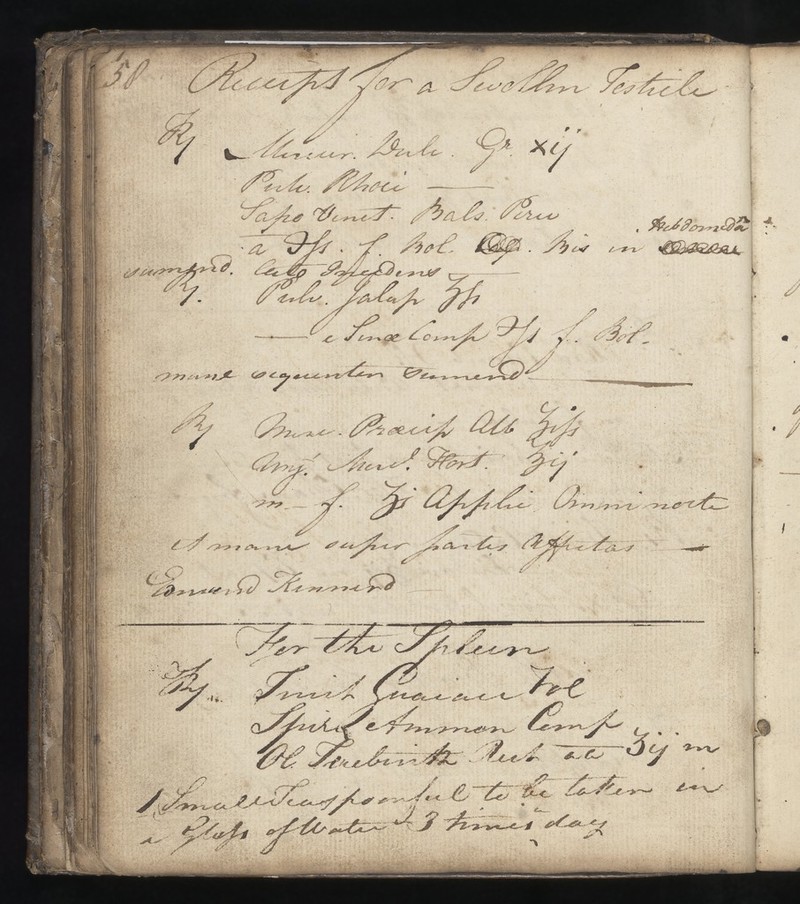 58
Receipt for a Swollen Testicle
℞ Mercur. Dulc. Gr. xij
Pulv. Rhoei —
Sapo Venet. Bals. Peru
a ℈ſs. f. Bol. Cap. Bis in Hebdomeda
sumend. lecto
℞. Pulv. Jalap ʒſs
— e Senæ Comp ℈ſs f. Bol.
mane sequenten sumend —
℞ Merc. Præcip Alb ʒiſs
Ung. Fort. ʒij
m — f. Applic Omni nocte
et mane super partes Affectas —
Edmund Kennerd —
For the Spleen
℞ Tinct Guaiaci Vol
Spirit Ammon Comp
Ol. Terebinth Rect aa ʒij m
1 Small Teaspoonful to be taken in
a Glass of Water 3 times a day